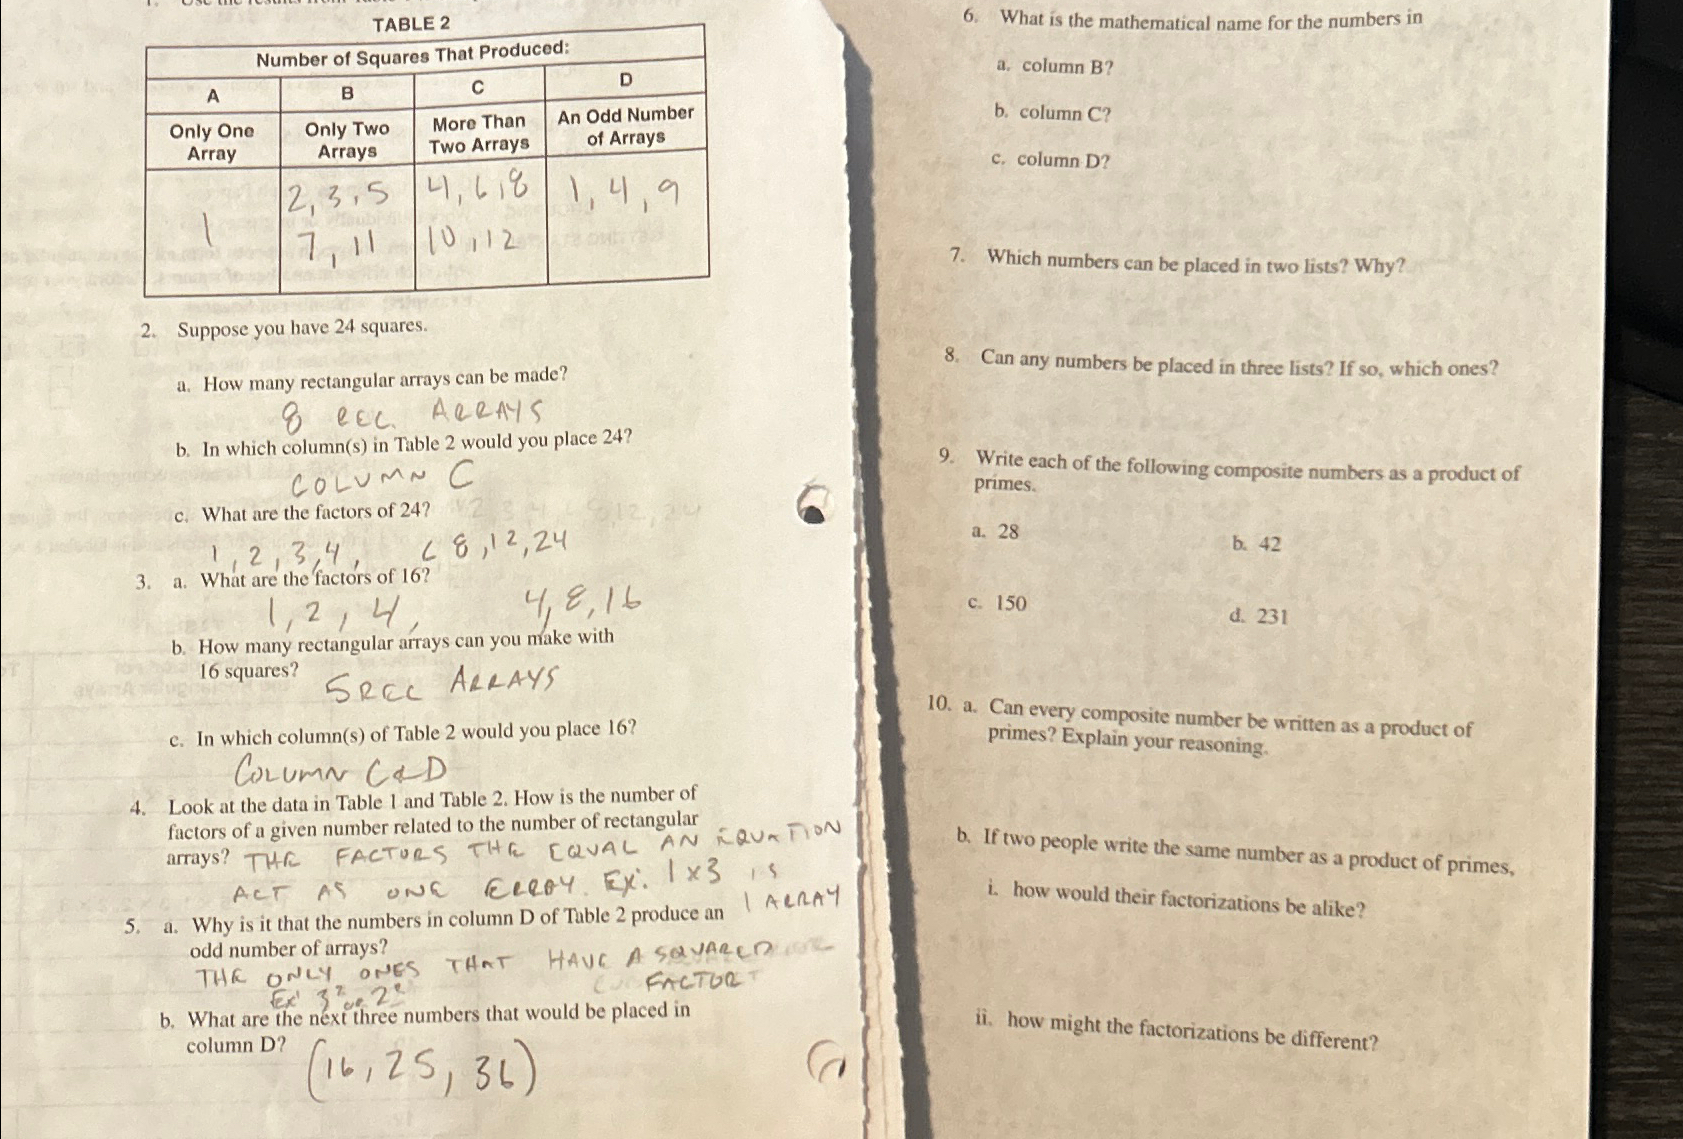 TABLE 2
Number of Squares That Produced:
A B C D
Only One Array
Only Two Arrays
More Than Two Arrays
An Odd Number of Arrays
1
2, 3, 5
7, 11
4, 6, 8
10, 12
1, 4, 9
2. Suppose you have 24 squares.
a. How many rectangular arrays can be made?
8 REC. ARRAYS
b. In which column(s) in Table 2 would you place 24?
COLUMN C
c. What are the factors of 24?
1, 2, 3, 4, 6 8, 12, 24
3. a. What are the factors of 16?
1, 2, 4, 4, 8, 16
b. How many rectangular arrays can you make with
16 squares?
5 REC ARRAYS
c. In which column(s) of Table 2 would you place 16?
COLUMN C & D
4. Look at the data in Table 1 and Table 2. How is the number of
factors of a given number related to the number of rectangular
arrays? THE FACTORS THE EQUAL AN EQUATION
ACT AS ONE ERRAY. EX: 1 x 3 IS
1 ARRAY
5. a. Why is it that the numbers in column D of Table 2 produce an
odd number of arrays?
THE ONLY ONES THAT HAVE A SQUARED
FACTOR
EX: 3² or 2²
b. What are the next three numbers that would be placed in
column D?
(16, 25, 36)
6. What is the mathematical name for the numbers in
a. column B?
b. column C?
c. column D?
7. Which numbers can be placed in two lists? Why?
8. Can any numbers be placed in three lists? If so, which ones?
9. Write each of the following composite numbers as a product of
primes.
a. 28 b. 42
c. 150 d. 231
10. a. Can every composite number be written as a product of
primes? Explain your reasoning.
b. If two people write the same number as a product of primes,
i. how would their factorizations be alike?
ii. how might the factorizations be different?